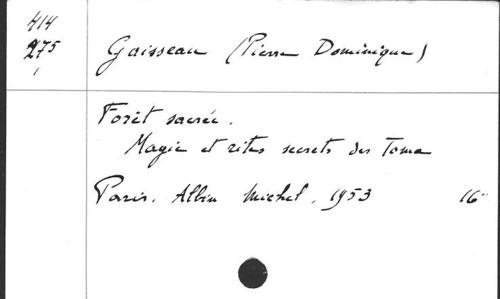 414
275
1
Gaisseau (Pierre Dominique)
Forêt sacrée.
Magie et rites secrets des Toma
Paris. Albin Michel, 1953 16